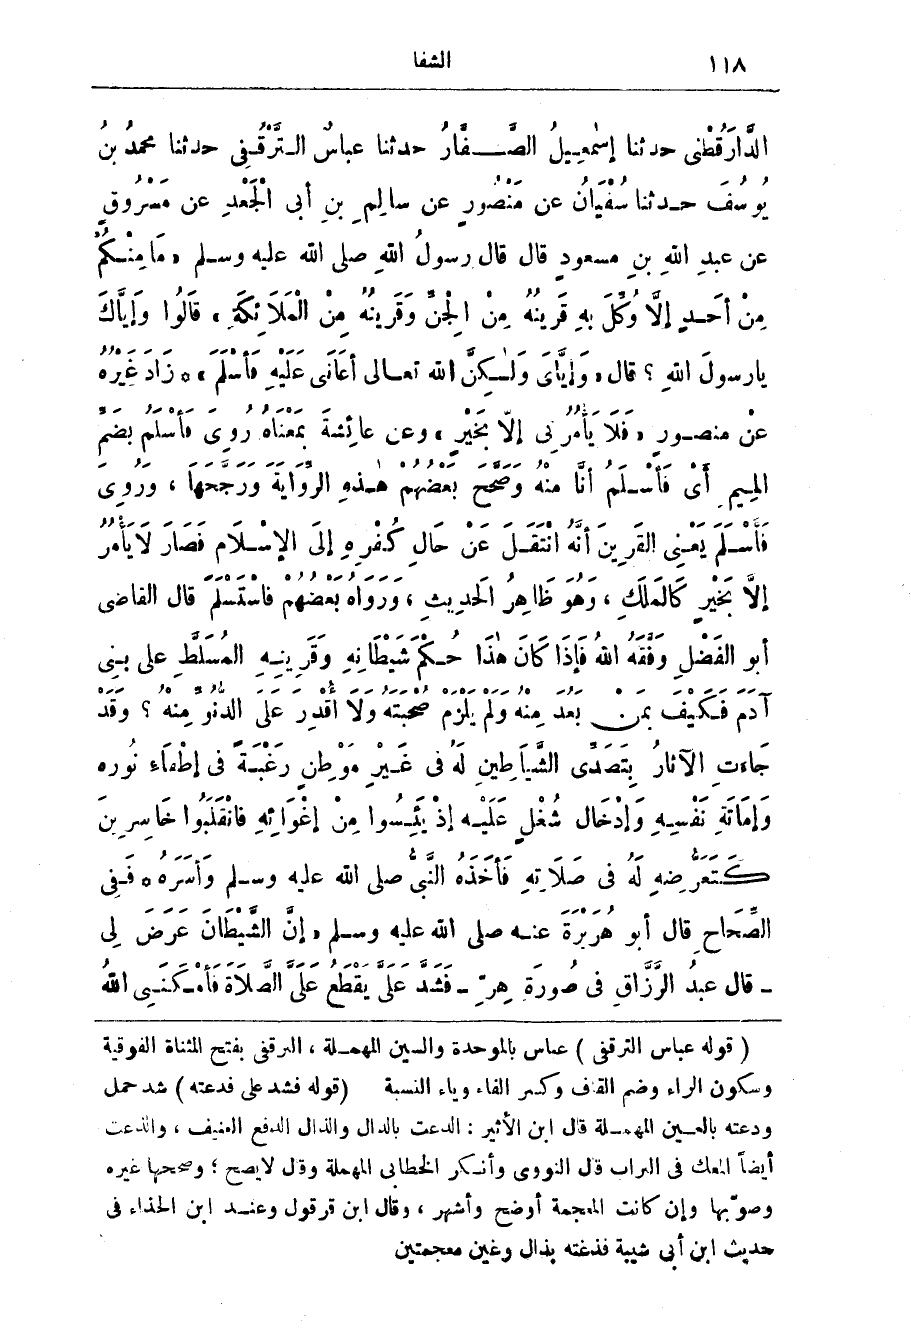 ١١٨ الشفا
الدَّارَقُطْنِى حدثنا إِسْمٰعِيلُ الصَّفَّارُ حدثنا عباسٌ التَّرْقُفِى حدثنا محمدُ بنُ
يُوسُفَ حدثنا سُفْيَانُ عن مَنْصُورٍ عن سالِمِ بنِ أبى الْجَعْدِ عن مَسْرُوقٍ
عن عبدِ اللهِ بنِ مسعودٍ قال قال رسولُ اللهِ صلى الله عليه وسلم « مَا مِنْكُمْ
مِنْ أَحَدٍ إِلَّا وُكِّلَ بِهِ قَرِينُهُ مِنَ الْجِنِّ وَقَرِينُهُ مِنْ الْمَلَائِكَةِ » قَالُوا وَإِيَّاكَ
يارسولَ اللهِ ؟ قال « وَإِيَّاىَ وَلٰكِنَّ الله تعالى أَعَانَنِى عَلَيْهِ فَأَسْلَمَ » ٥ زَادَ غَيْرُهُ
عنْ منصورٍ « فَلَا يَأْمُرُنِى إلاّ بِخَيْرٍ » وعن عائِشةَ بِمَعْنَاهُ رُوِىَ فَأَسْلَمُ بِضَمِّ
الْمِيمِ أَىْ فَأَسْلَمُ أنَا منْهُ وَصَحَّحَ بَعْضُهُمْ هٰذِهِ الرِّوَايَةَ وَرَجَّحَهَا ، وَرُوِىَ
فَأَسْلَمَ يَعْنِى القَرِينَ أَنَّهُ انْتَقَلَ عَنْ حَالِ كُفْرِهِ إلَى الإِسْلَامِ فَصَارَ لَا يَأْمُرُ
إلاَّ بِخَيْرٍ كَالمَلَكِ ، وَهُوَ ظَاهِرُ الْحَدِيثِ ، وَرَوَاهُ بَعْضُهُمْ فاسْتَسْلَمَ قال القاضى
أبو الفَضْلِ وَفَّقَهُ اللهُ فَإِذَا كَانَ هٰذَا حُكْمَ شَيْطَانِهِ وَقَرِينِهِ المُسَلَّطِ على بَنِى
آدَمَ فَكَيْفَ بِمَنْ بَعُدَ مِنْهُ وَلَمْ يَلْزَمْ صُحْبَتَهُ وَلَا أُقْدِرَ عَلَى الدُّنُوِّ مِنْهُ ؟ وَقَدْ
جَاءتِ الآثارُ بِتَصَدِّى الشَّيَاطِينِ لَهُ فى غَيْرِ مَوْطِنٍ رَغْبَةً فى إِطْفَاءِ نُورِهِ
وَإِمَاتَةِ نَفْسِهِ وَإِدْخَالِ شُغْلٍ عَلَيْهِ إِذْ يَئِسُوا مِنْ إِغْوَائِهِ فَانْقَلَبُوا خَاسِرِينَ
كَتَعَرُّضِهِ لَهُ فى صَلَاتِهِ فَأَخَذَهُ النَّبِىُّ صلى الله عليه وسلم وَأَسَرَهُ ٥ فَفِى
الصِّحَاحِ قال أبو هُرَيْرَةَ عنه صلى الله عليه وسلم « إنَّ الشَّيْطَانَ عَرَضَ لِى
ـ قال عبدُ الرَّزَّاقِ فى صُورَةِ هِرٍّ ـ فَشَدَّ عَلَىَّ يَقْطَعُ عَلَىَّ الصَّلَاةَ فَأَمْكَنَنِى اللهُ
( قوله عباس الترقفى ) عباس بالموحدة والسين المهملة ، الترقفى بفتح المثناة الفوقية
وسكون الراء وضم القاف وكسر الفاء وياء النسبة (قوله فشد على فدعته ) شد حمل
ودعته بالعين المهملة قال ابن الأثير : الدعت بالدال والذال الدفع العنيف ، والذعت
أيضاً المعك فى التراب قال النووى وأنكر الخطابى المهملة وقال لايصح ؛ وصححها غيره
وصوّبها وإن كانت المعجمة أوضح وأشهر ، وقال ابن قرقول وعند ابن الحذاء فى
حديث ابن أبى شيبة فذغته بذال وغين معجمتين